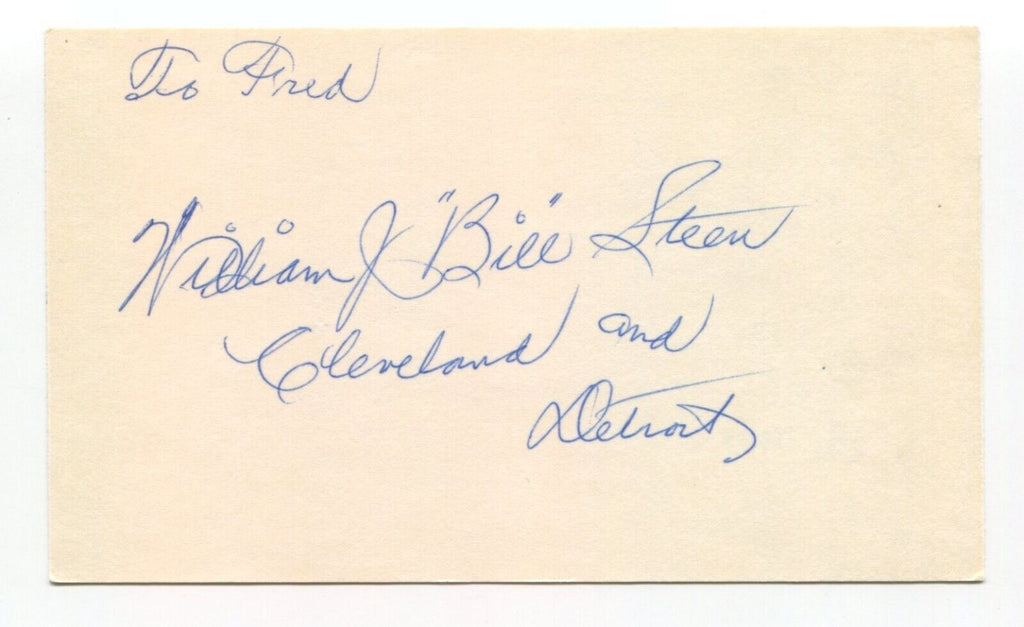 To Fred
William J "Bill" Steen
Cleveland and
Detroit